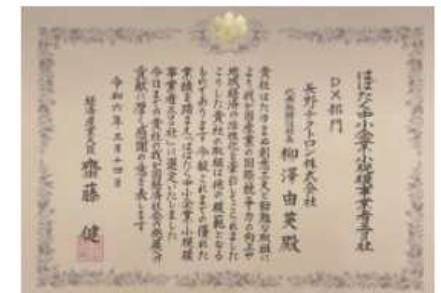 はばたく中小企業・小規模事業者三〇〇社
DX部門
長野テクトロン株式会社
代表取締役社長 柳澤由英殿
貴社はたゆまぬ創意工夫で勤勉な取組に
より我が国産業の国際競争力の向上や
地域経済の活性化を牽引してこられました
こうした貴社の取組は他の模範となる
ものであります今般これまでの優れた
業績を踏まえ「はばたく中小企業・小規模
事業者三〇〇社」に選定いたしました
今日までの貴社の我が国経済社会の発展への
貢献に厚く感謝の意を表します
令和六年三月十四日
経済産業大臣 齋藤健